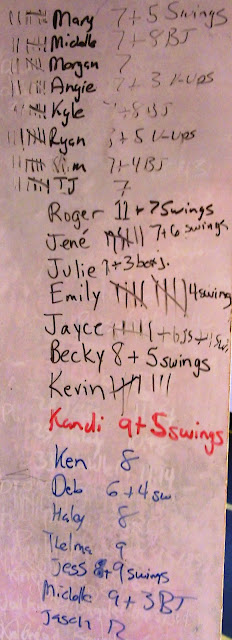 Mary 7+5 Swings
Michelle 7+8 BJ
Morgan 7
Angie 7+3 V-ups
Kyle 7+8 BJ
Ryan 7+5 V-ups
Tim 7+4 BJ
TJ 7
Roger 11+7 Swings
Jené 7+6 swings
Julie 7+3
Emily 4 swing
Jayce
Becky 8+5 swings
Kevin
Kandi 9+5 swings
Ken 8
Deb 6+4 sw
Haley 8
Thelma 9
Jess 8+9 swings
Michelle 9+3 BJ
Jason 12